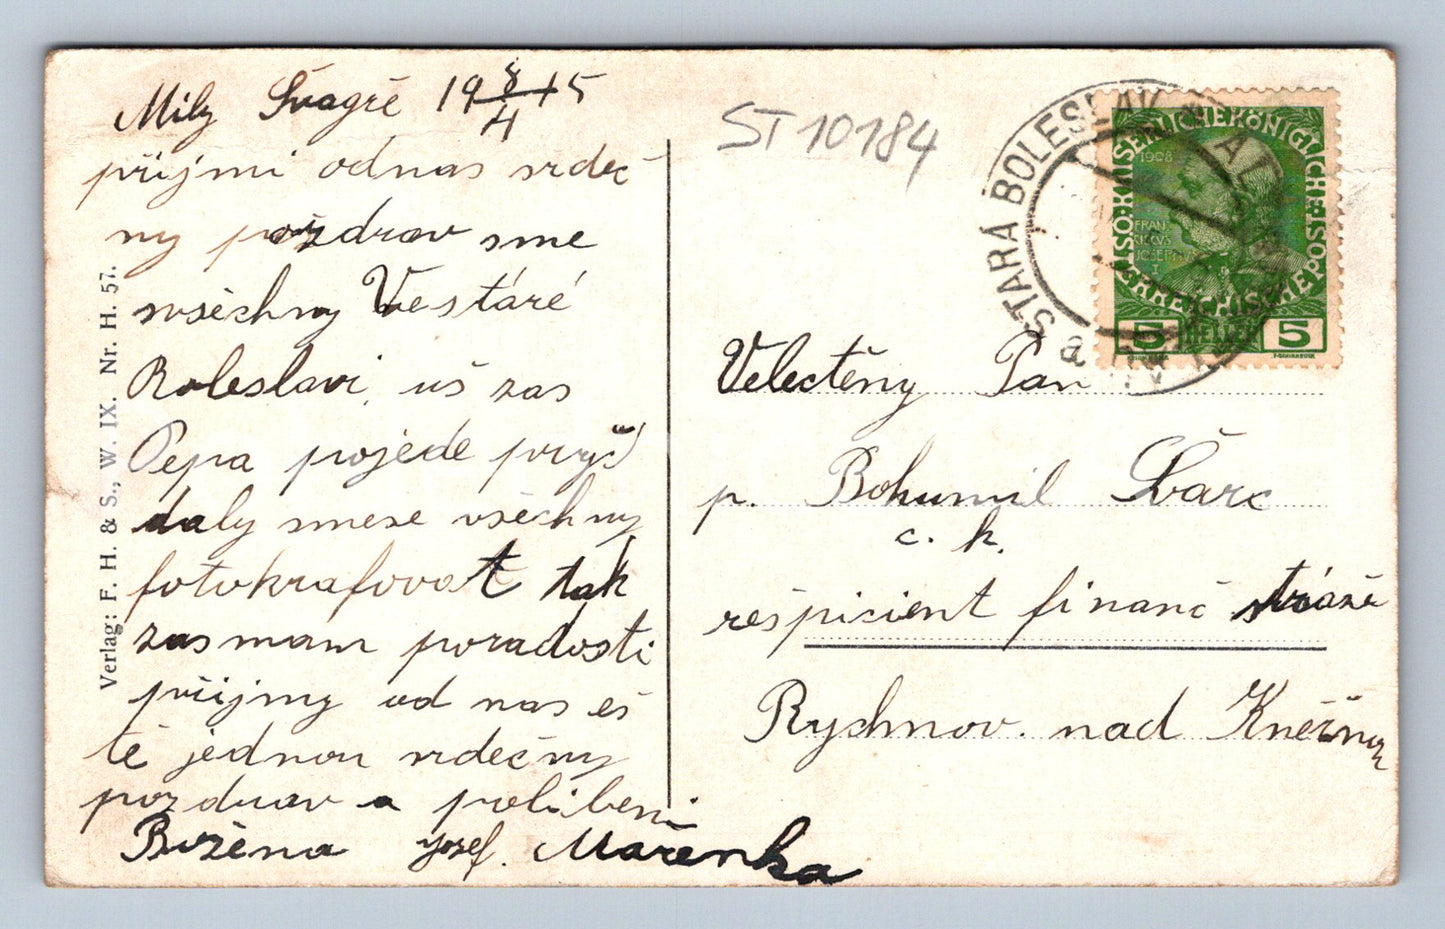 Milý Švagře 19 8/4 15
přijmi odnas srdeč
ny pozdrav sme
wšechny Vestáré
Boleslavi, uš zas
Pepa pojede pryč
daly smese všechny
fotokrafovat tak
zasmam poradosti
přijmy od nas eš
tě jednou srdečny
pozdrav a polibeni
Božena Josef. Mařenka
Verlag: F. H. & S., W. IX. Nr. H. 57.
ST 10184
STARÁ BOLESLAV
a
KAISERLICHE KÖNIGLICHE ÖSTERREICHISCHE POST
1908
FRAN
CISCVS
JOSEPHVS
I
5 HELLER 5
Velectěny Pan
p. Bohumil Švárc
c. k.
rešpicient finanč stráže
Rychnov nad Kněžnou